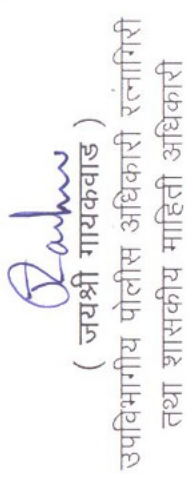 ( जयश्री गायकवाड )
उपविभागीय पोलीस अधिकारी रत्नागिरी
तथा शासकीय माहिती अधिकारी